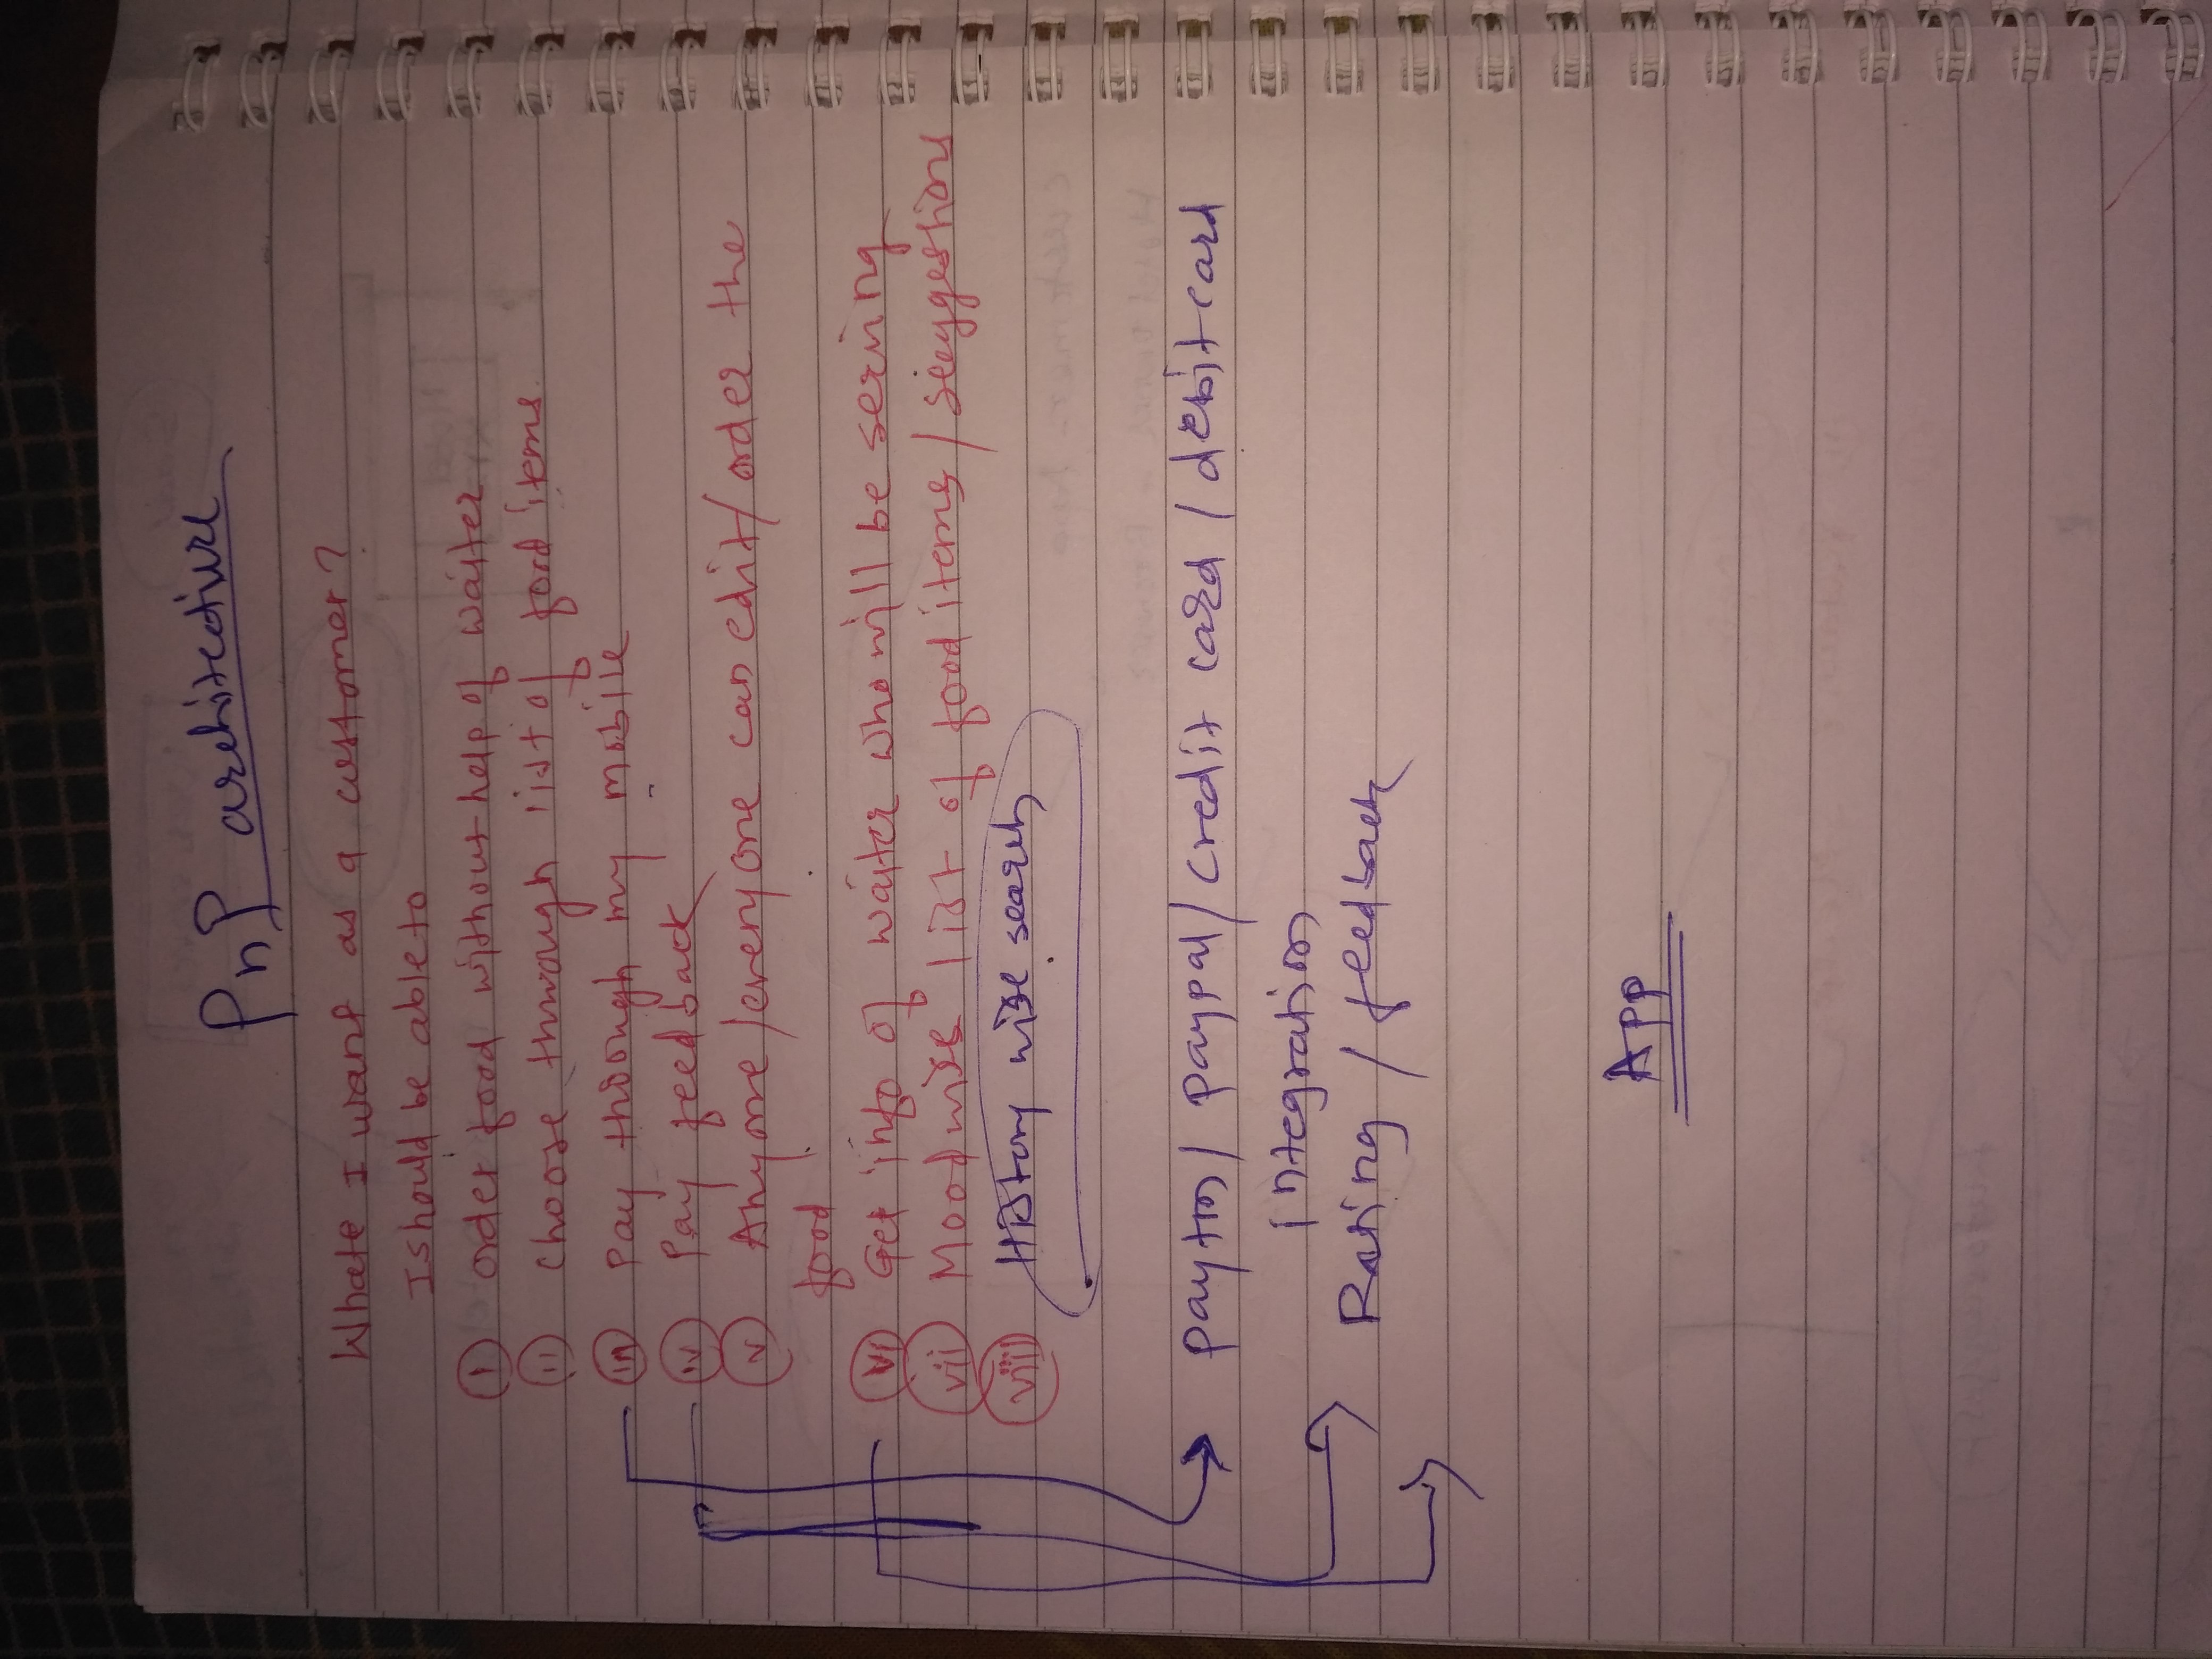 PnP architecture
Whate I want as a customer?
I should be able to
i order food without help of waiter
ii choose through list of food items
iii Pay through my mobile
iv Pay feedback
v Anyone/everyone can edit/order the
food
vi Get info of waiter who will be serving
vii Moodwise list of food items/suggestions
viii History wise search
paytm/paypal/credit card/debit card
integration
Rating/feedback
App